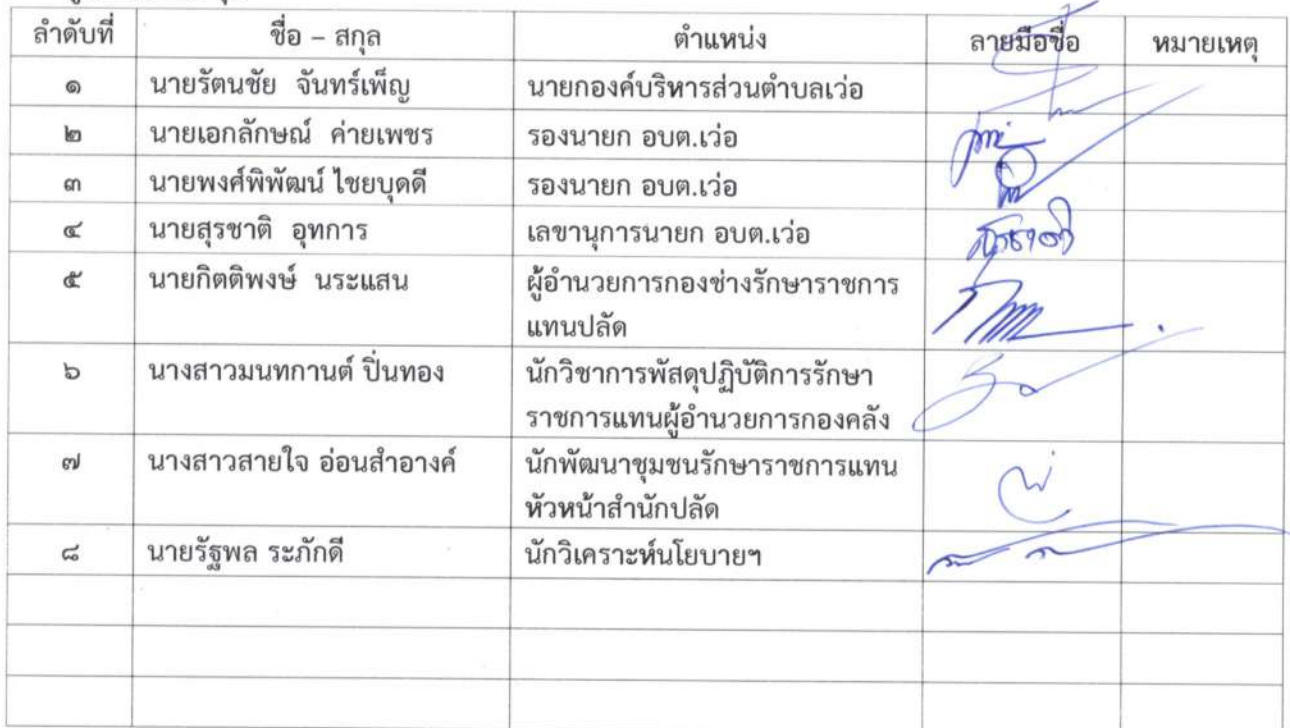 ลำดับที่ ชื่อ – สกุล ตำแหน่ง ลายมือชื่อ หมายเหตุ
๑ นายรัตนชัย จันทร์เพ็ญ นายกองค์บริหารส่วนตำบลเว่อ
๒ นายเอกลักษณ์ ค่ายเพชร รองนายก อบต.เว่อ
๓ นายพงศ์พิพัฒน์ ไชยบุดดี รองนายก อบต.เว่อ
๔ นายสุรชาติ อุทการ เลขานุการนายก อบต.เว่อ
๕ นายกิตติพงษ์ นระแสน ผู้อำนวยการกองช่างรักษาราชการ
แทนปลัด
๖ นางสาวมนทกานต์ ปิ่นทอง นักวิชาการพัสดุปฏิบัติการรักษา
ราชการแทนผู้อำนวยการกองคลัง
๗ นางสาวสายใจ อ่อนสำอางค์ นักพัฒนาชุมชนรักษาราชการแทน
หัวหน้าสำนักปลัด
๘ นายรัฐพล ระภักดี นักวิเคราะห์นโยบายฯ